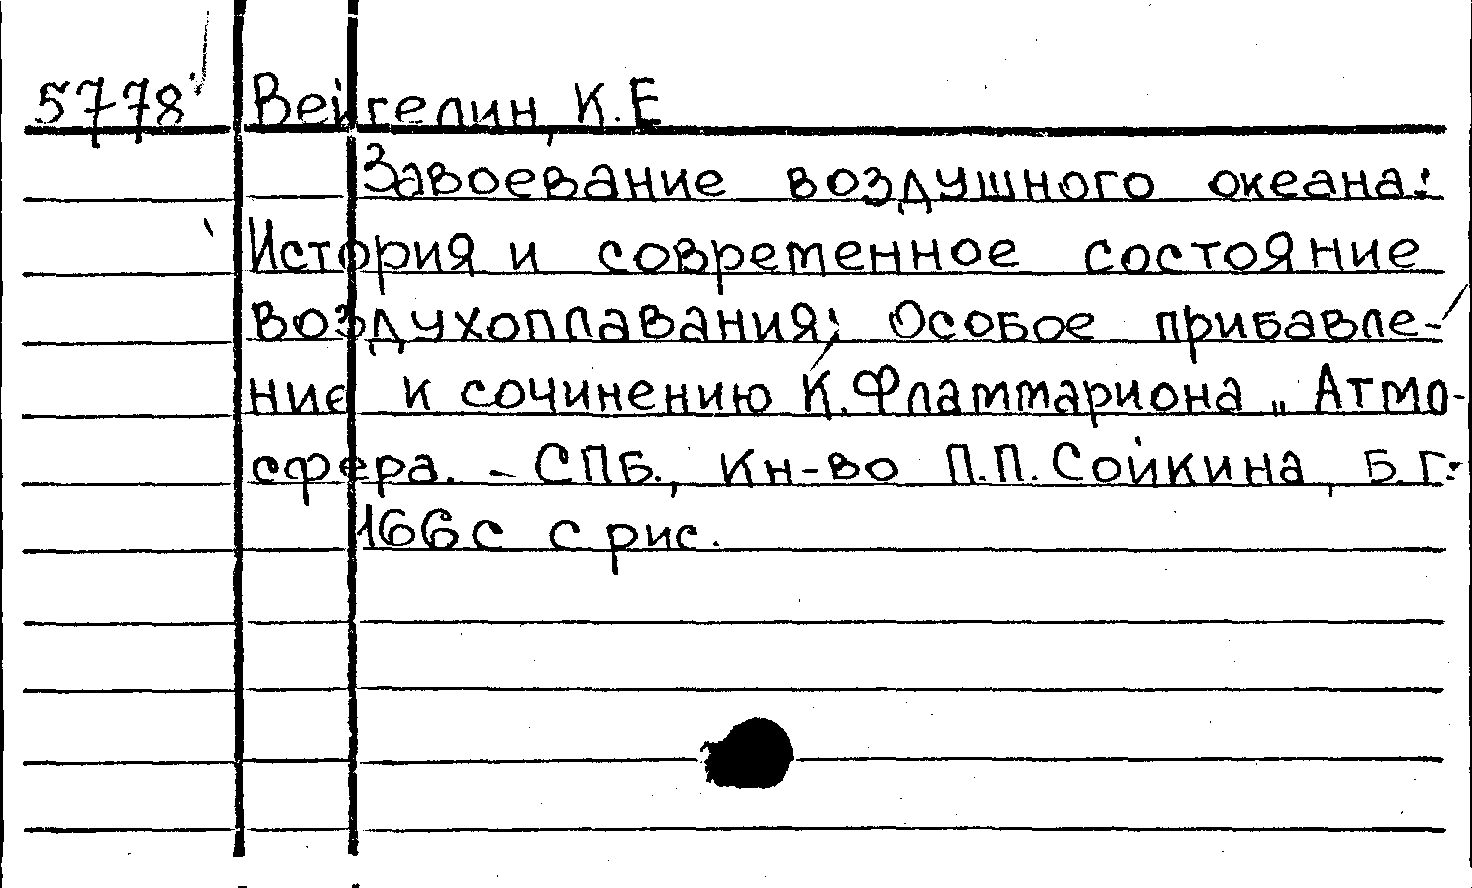 5778 Вейгелин, К.Е
Завоевание воздушного океана:
История и современное состояние
воздухоплавания; Особое прибавле-
ние к сочинению К.Фламмариона „Атмо-
сфера. - СПБ., Кн-во П.П.Сойкина, Б.Г.
166с с рис.